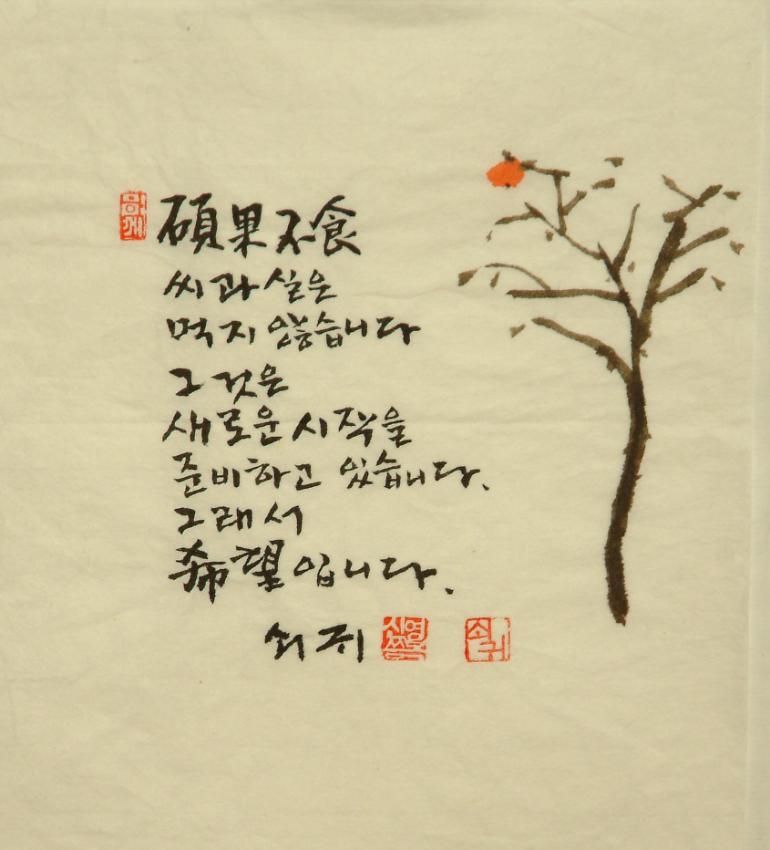 碩果不食
씨과실은
먹지 않습니다
그것은
새로운 시작을
준비하고 있습니다.
그래서
希望입니다.
쇠귀